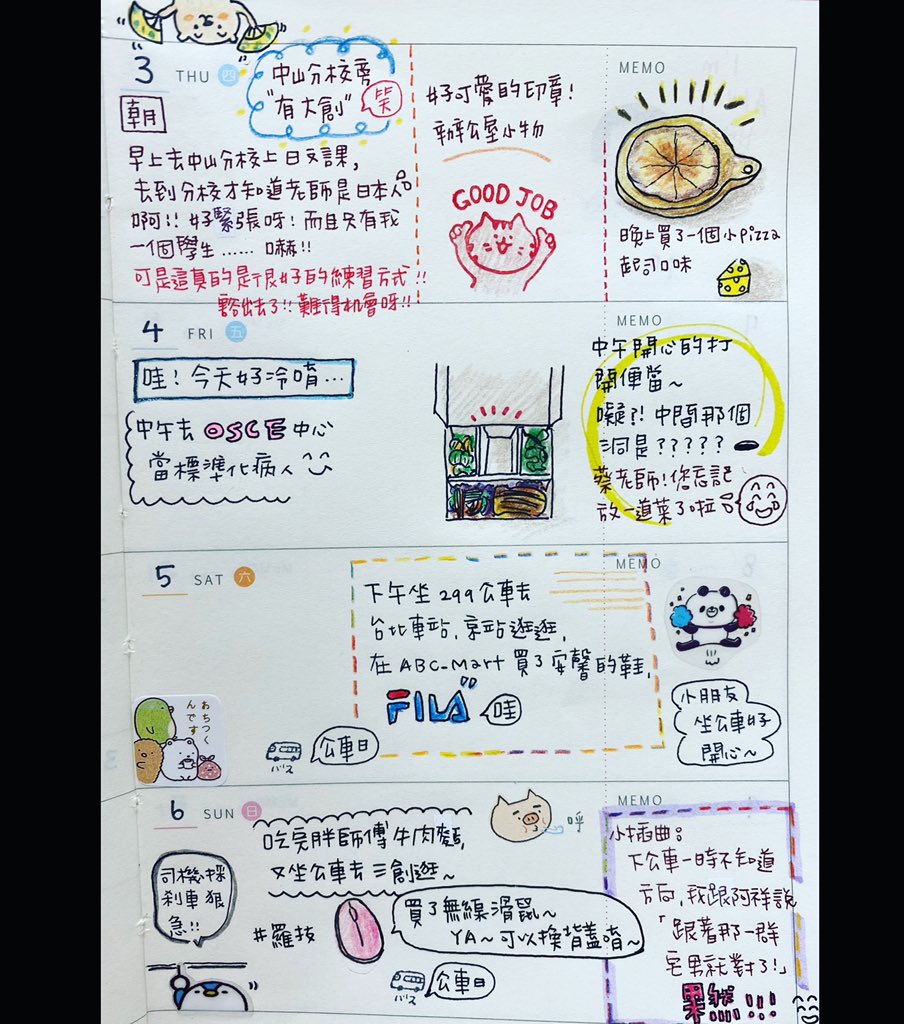 3 THU 四
中山分校旁
"有大創" 笑
朝
早上去中山分校上日文課,
去到分校才知道老師是日本人
啊!! 好緊張呀! 而且只有我
一個學生…… 嚇!!
可是這真的是很好的練習方式!!
豁出去了!! 難得机會呀!!
好可愛的印章!
辦公室小物
GOOD JOB
MEMO
晚上買了一個小pizza
起司口味
4 FRI 五
哇! 今天好冷唷…
中午去 OSCE 中心
當標準化病人
MEMO
中午開心的打
開便當~
囈?! 中間那個
洞是?????
蔡老師! 您忘記
放一道菜了啦
5 SAT 六
おちつく
んです
バス
公車日
下午坐299公車去
台北車站,京站逛逛,
在ABC-Mart買了安馨的鞋,
FILA 哇
MEMO
小朋友
坐公車好
開心~
6 SUN 日
吃完胖師傅牛肉麵,
又坐公車去三創逛~
呼
司機採
剎車狠
急!!
#羅技
買了無線滑鼠~
YA~可以換背蓋唷~
バス
公車日
MEMO
小插曲:
下公車一時不知道
方向,我跟阿祥說
「跟著那一群
宅男就對了!」
果然!!!